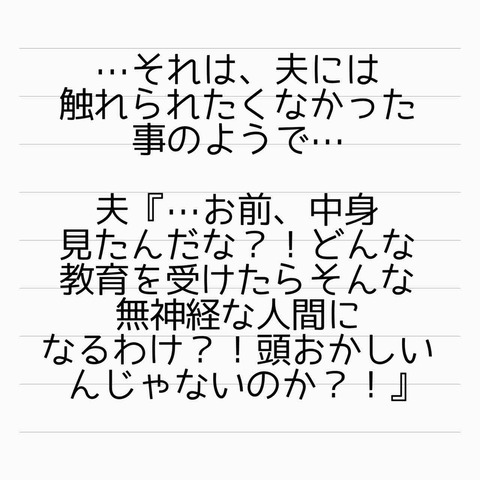 …それは、夫には
触れられたくなかった
事のようで…
夫『…お前、中身
見たんだな？！どんな
教育を受けたらそんな
無神経な人間に
なるわけ？！頭おかしい
んじゃないのか？！』